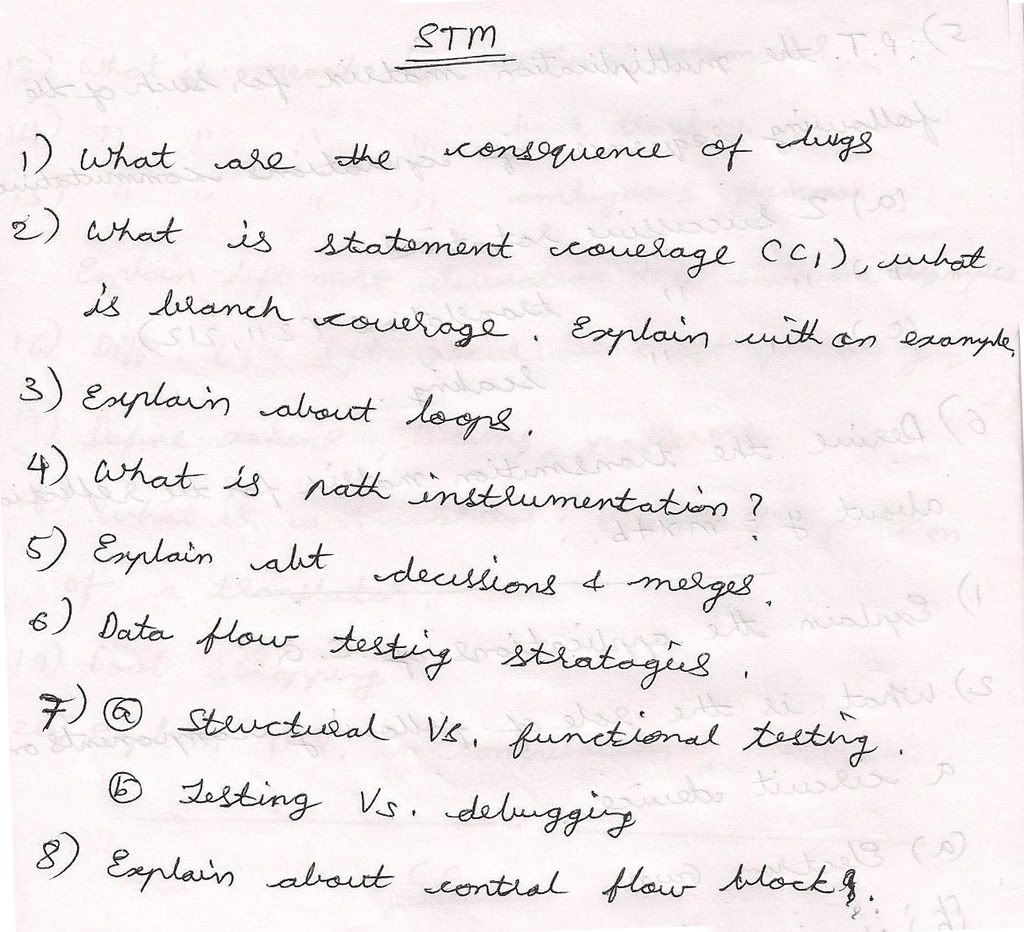 STM
1) What are the consequence of bugs
2) What is statement coverage (C1), what
is branch coverage. Explain with an example.
3) Explain about loops.
4) What is path instrumentation?
5) Explain abt decissions & merges.
6) Data flow testing stratagies.
7) (a) Structural Vs. functional testing.
(b) Testing Vs. debugging
8) Explain about control flow blocks.